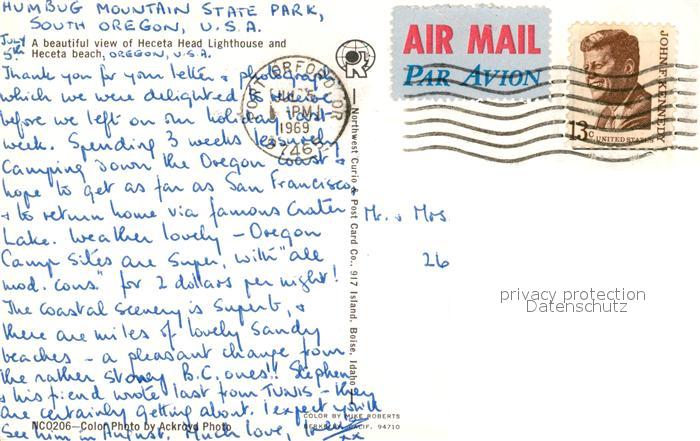 HUMBUG MOUNTAIN STATE PARK,
SOUTH OREGON, U.S.A.
July 5th
A beautiful view of Heceta Head Lighthouse and
Heceta beach, OREGON, U.S.A.
Thank you for your letter & photograph
which we were delighted to receive
before we left on our holiday last
week. Spending 3 weeks leisurely
camping down the Oregon coast &
hope to get as far as San Francisco
& to return home via famous Crater
Lake. Weather lovely – Oregon
Camp Sites are super, with "all
mod. cons." for 2 dollars per night!
The coastal scenery is superb, &
there are miles of lovely sandy
beaches – a pleasant change from
the rather stoney B.C. ones!! Stephen
& his friend wrote last from TUNIS – they
are certainly getting about. I expect you'll
see him in August. Much love,
xx
NCO206—Color Photo by Ackroyd Photo
COLOR BY MIKE ROBERTS
BERKELEY, CALIF. 94710
Northwest Curio & Post Card Co., 917 Island, Boise, Idaho
PORT ORFORD, OR
PM
1969
AIR MAIL
PAR AVION
JOHN F. KENNEDY
13c UNITED STATES
Mr. & Mrs.
26
privacy protection
Datenschutz